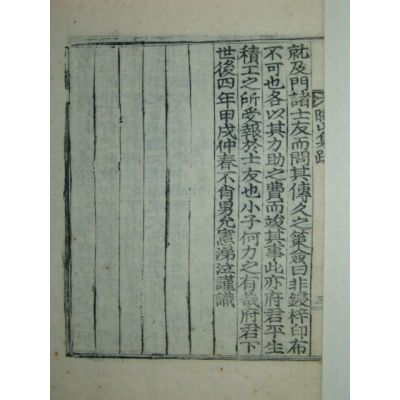 山集跋
就及門諸士友而問其傳久之策僉曰非鋟梓印布
不可也各以其力助之費而竣其事此亦府君平生
積工之所受報於士友也小子何力之有哉府君下
世後四年甲戌仲春不肖男允憲涕泣謹識